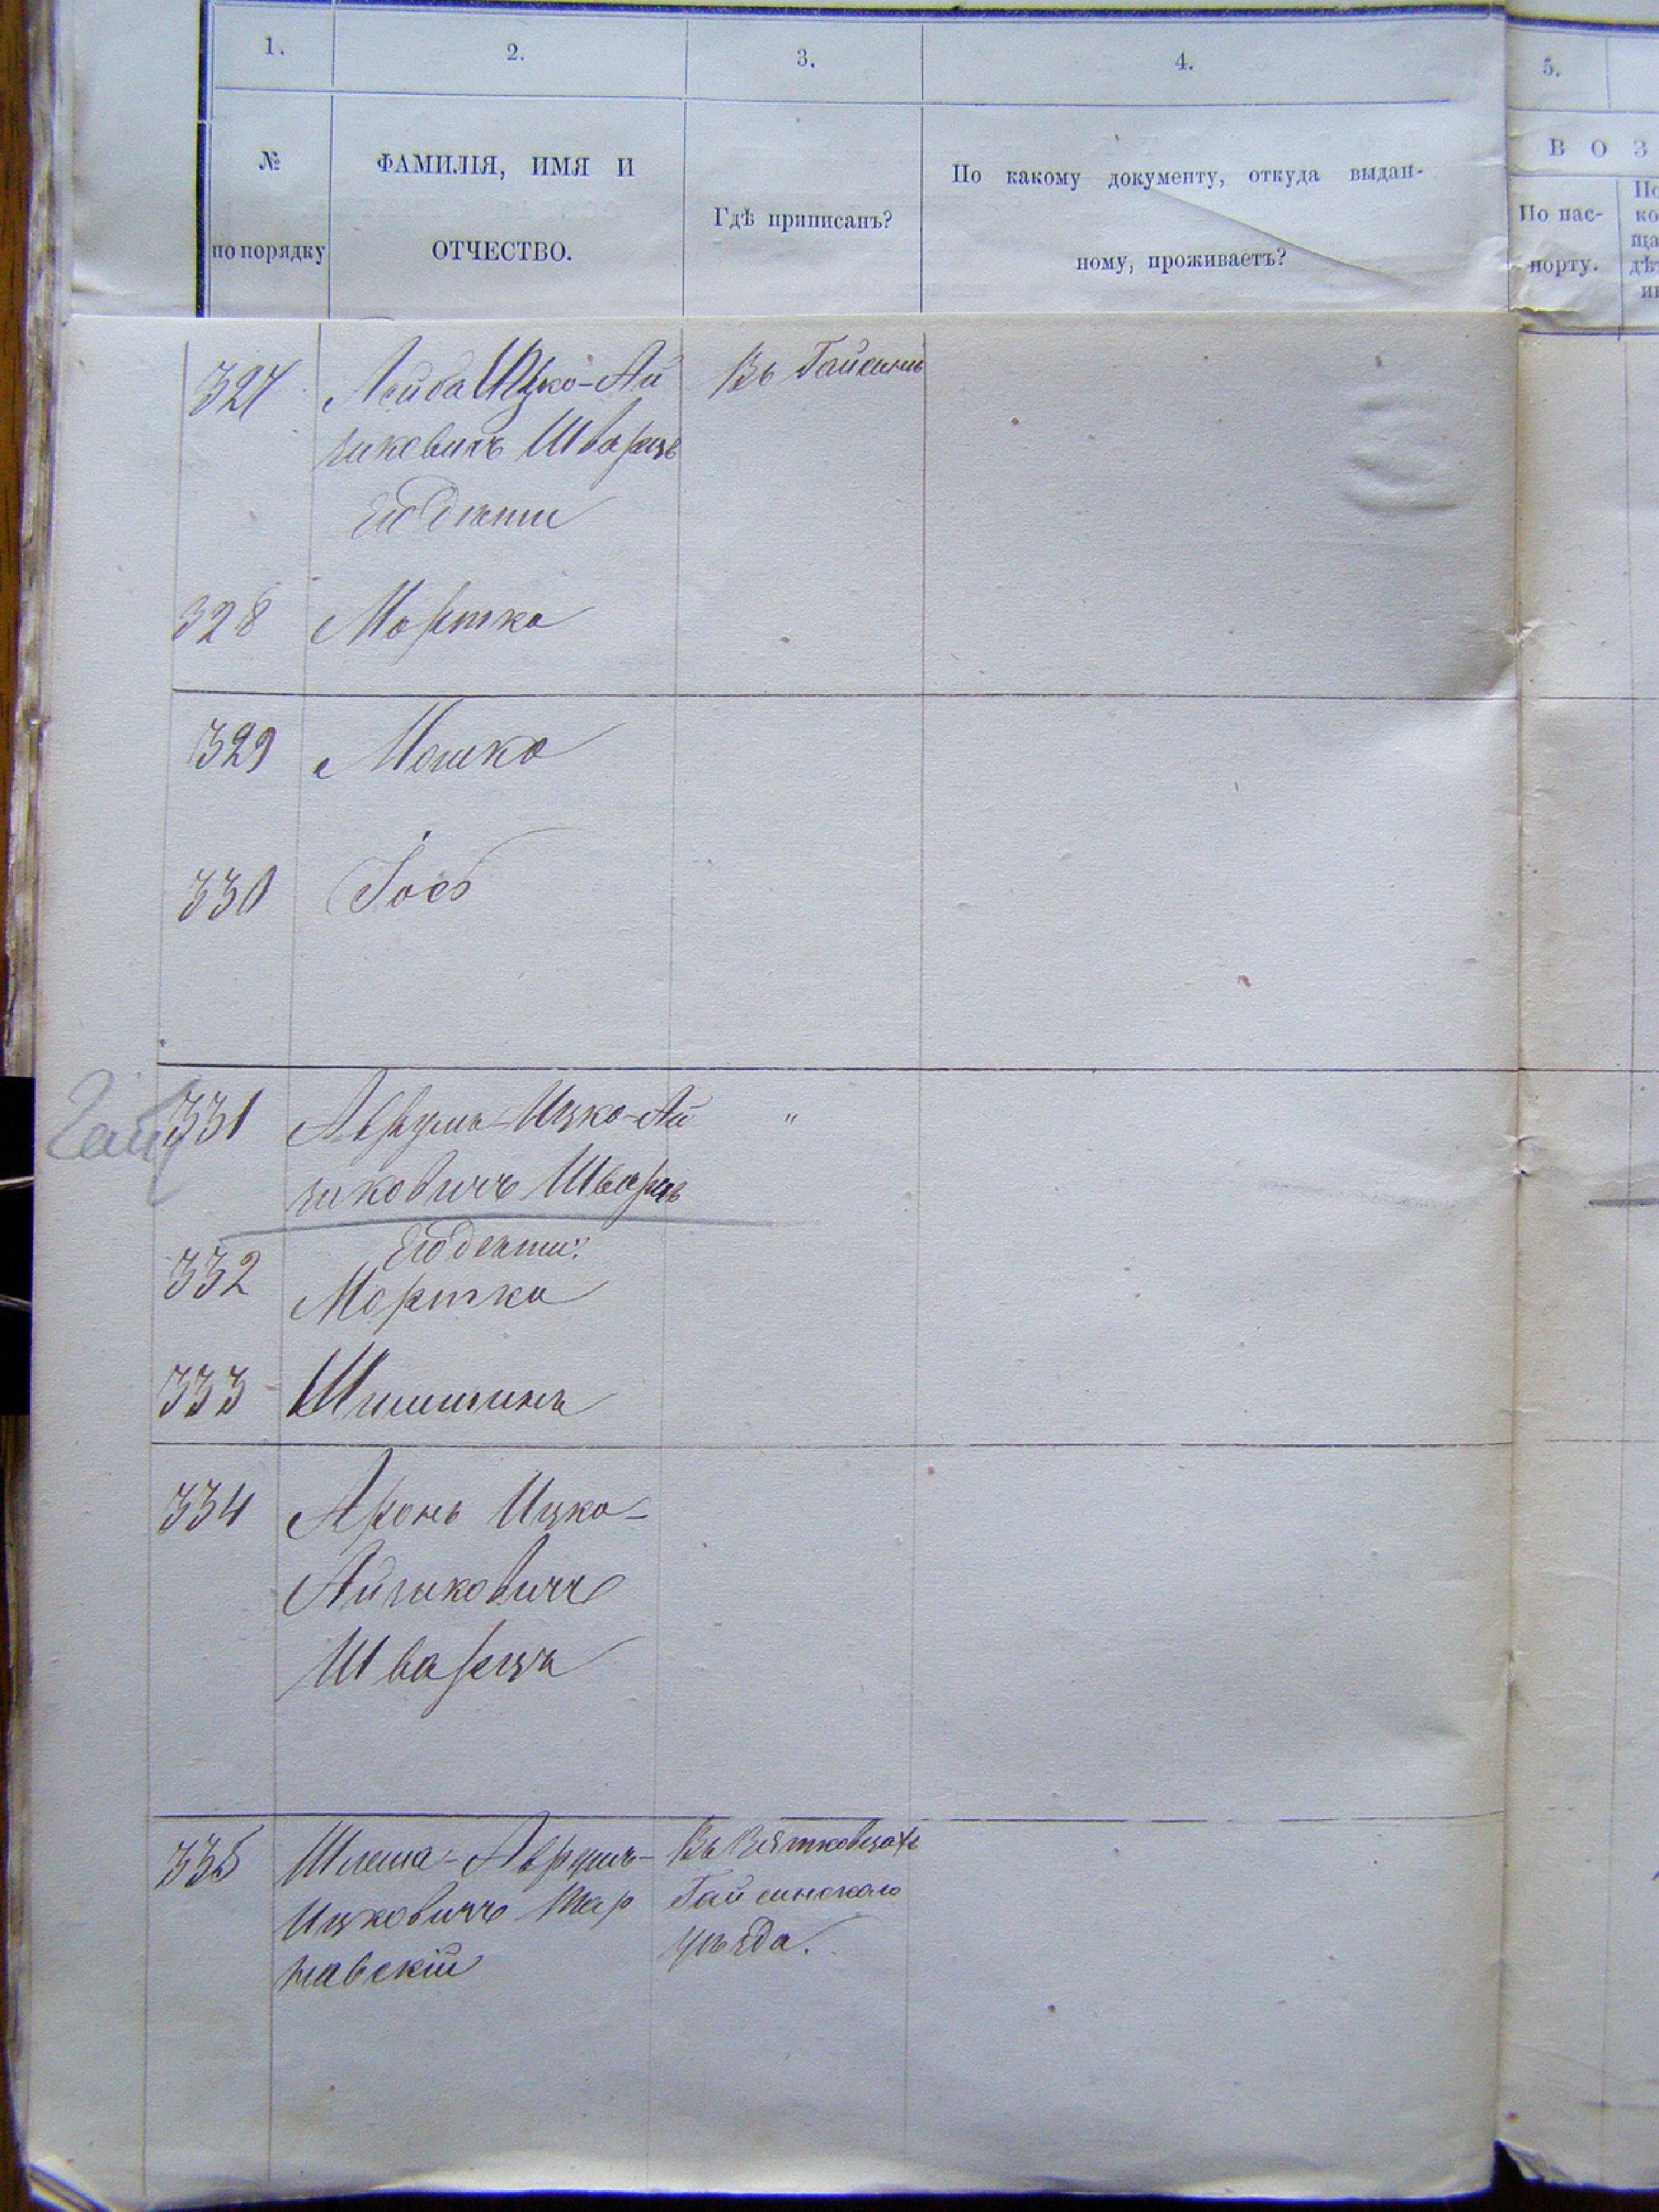 1.
2.
3.
4.
5.
№
по порядку
ФАМИЛІЯ, ИМЯ И
ОТЧЕСТВО.
Гдѣ приписанъ?
По какому документу, откуда выдан-
ному, проживаетъ?
В О З
По пас-
порту.
327 Лейба Ицко-Ай
зиковичъ Шварцъ
Въ Гайсинѣ
Его дѣти
328 Мортко
329 Мошко
330 Іосъ
331 Аврумъ-Ицко-Ай "
зиковичъ Шварцъ
Его дѣти:
332 Мортко
333
334 Аронъ Ицко-
Айзиковичъ
Шварцъ
335 Шлема-Аврумъ-
Ицковичъ Тар
навскій
Въ Вятковцахъ
Гайсинскаго
уѣзда.